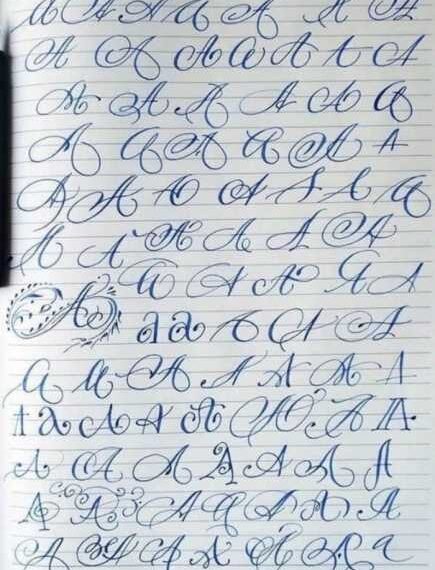 A A A A A A A
A A A A A A A
A A A A A A
A A A A A A
A A A A A A A
A A A A A A
A A A A A
A a a A A A
A A A A A A A
A a A A A A A A
A A A A A A A
A A A A A A A
A A A A A A A a